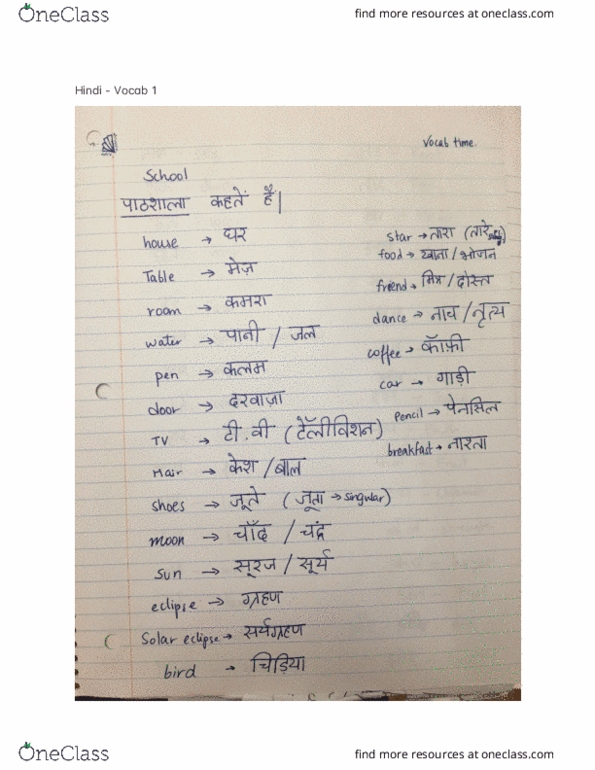 OneClass
find more resources at oneclass.com
Hindi - Vocab 1
Vocab time.
School
पाठशाला कहतें हैं|
house → घर
Table → मेज़
room → कमरा
water → पानी / जल
pen → कलम
door → दरवाज़ा
TV → टी.वी (टेलीविशन)
Hair → केश/बाल
shoes → जूते (जूता → singular)
moon → चाँद / चंद्र
Sun → सूरज / सूर्य
eclipse → ग्रहण
Solar eclipse → सर्यग्रहण
bird → चिड़िया
star → तारा (तारे)
food → खाना / भोजन
friend → मित्र/दोस्त
dance → नाच /नृत्य
coffee → कॅाफ़ी
car → गाड़ी
Pencil → पेनसिल
breakfast → नाश्ता
OneClass
find more resources at oneclass.com